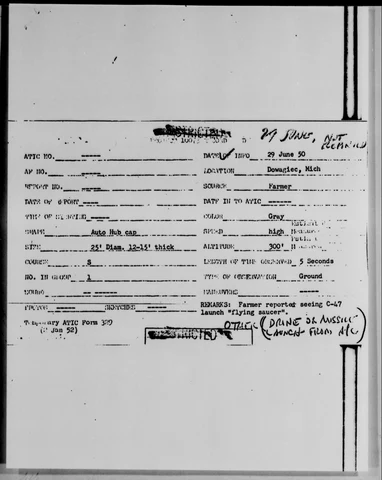 RESTRICTED
29 JUNE, NOT
ATIC NO. -----
DATE OF INFO 29 June 50
AF NO. -----
LOCATION Dowagiac, Mich
REPORT NO. -----
SOURCE Farmer
DATE OF REPORT ----
DATE IN TO ATIC ------
TIME OF SIGHTING -----
COLOR Gray
SHAPE Auto Hub cap
SPEED high
SIZE 25' Diam. 12-15' thick
ALTITUDE 300'
COURSE S
LENGTH OF TIME OBSERVED 5 Seconds
NO. IN GROUP 1
TYPE OF OBSERVATION Ground
SOUND -- ------
MANEUVERS ----
PHOTOS SKETCHES
REMARKS: Farmer reported seeing C-47
launch "flying saucer".
Temporary ATIC Form 329
(2 Jan 52)
OTHER (DRONE OR MISSILE
LAUNCH FROM A/C)
RESTRICTED